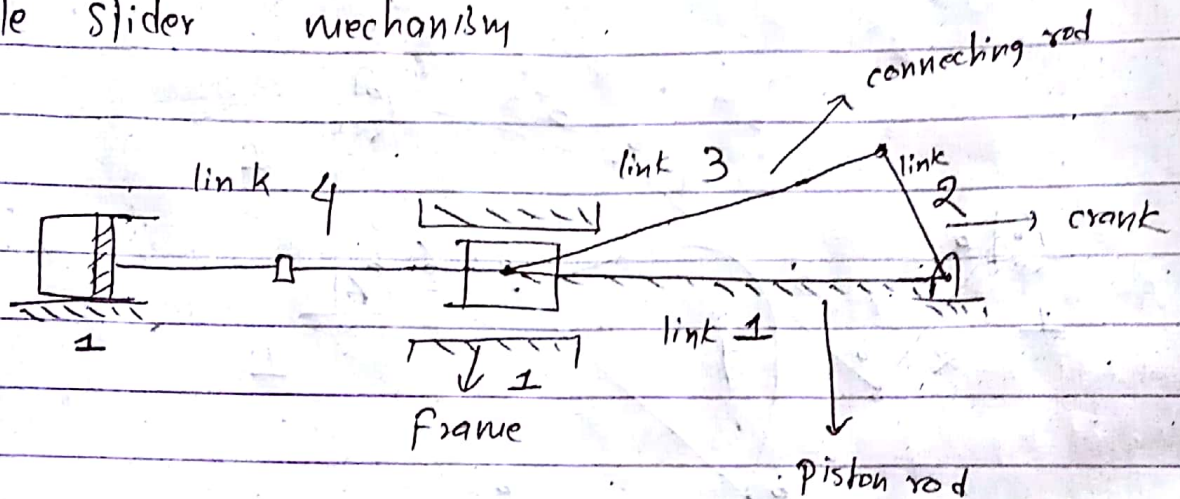 le slider mechanism
connecting rod
link 3
link 4
link 2
crank
1
link 1
1
Frame
piston rod